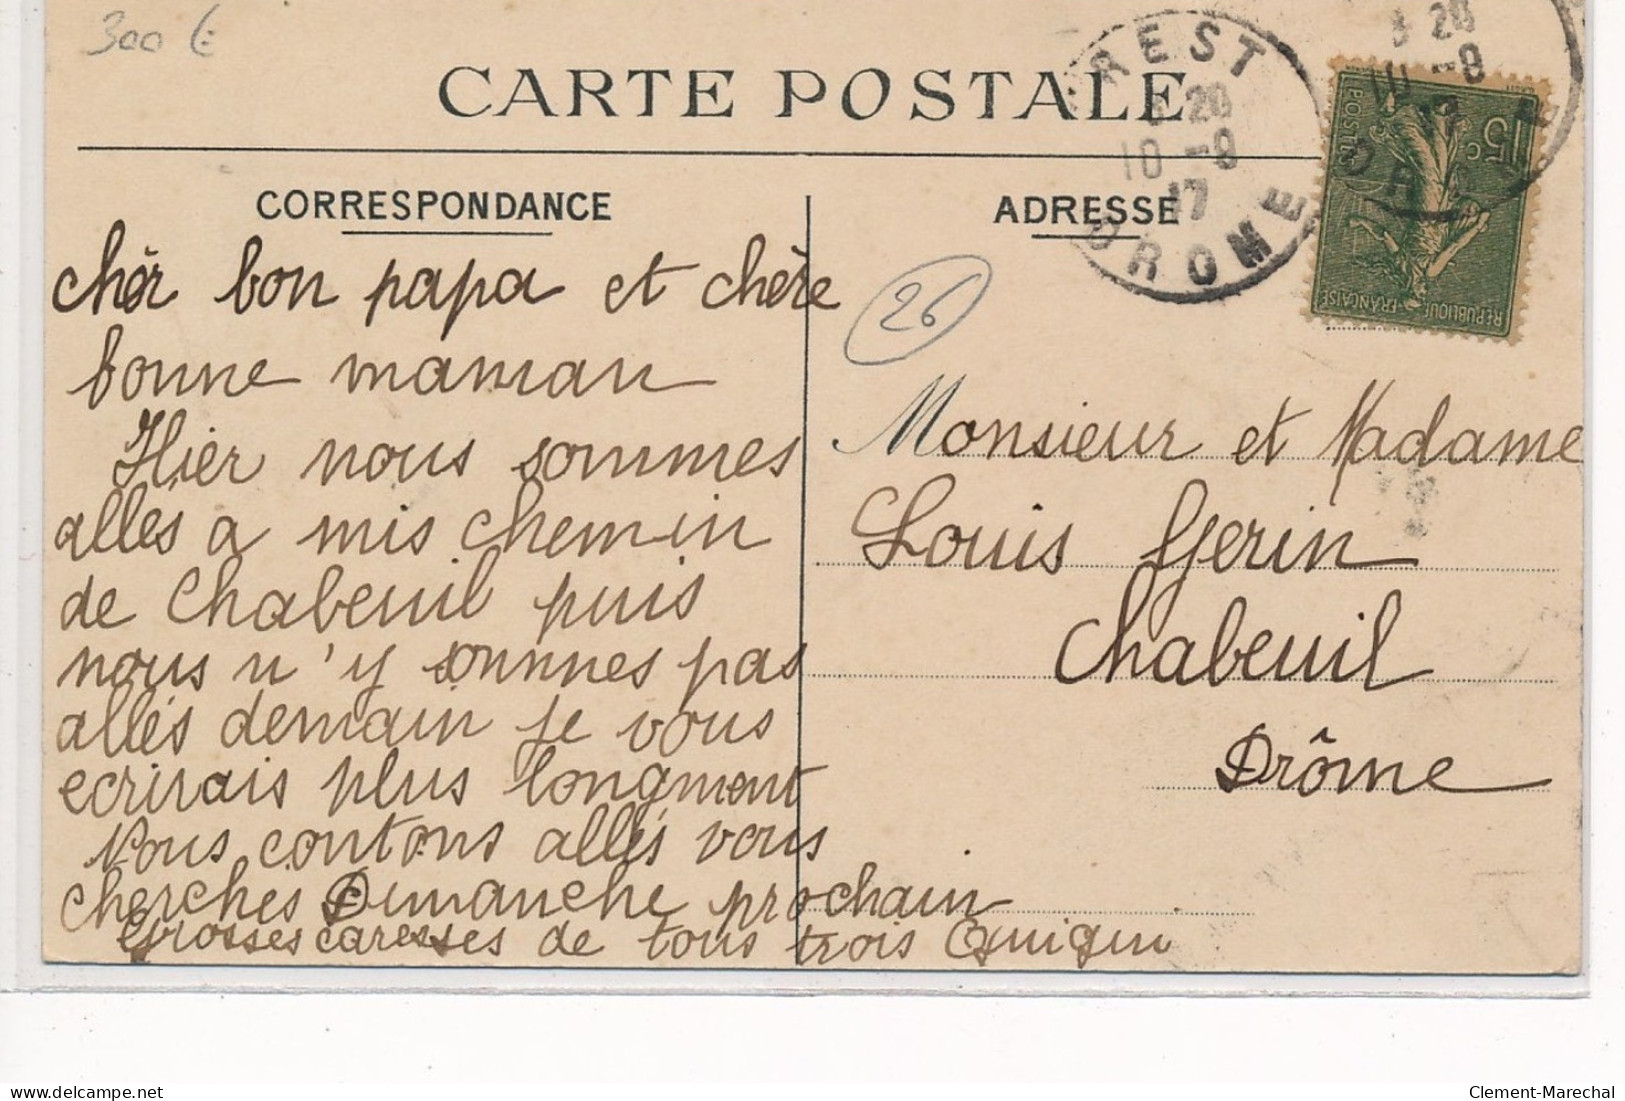 300 €
CARTE POSTALE
REST
20
10 -8
17
DROME
20
10 -8
POSTES
15c
REPUBLIQUE FRANÇAISE
CORRESPONDANCE
ADRESSE
26
chèr bon papa et chère
bonne maman
Hier nous sommes
alles a mis chemin
de Chabeuil puis
nous n'y sommes pas
allés demain je vous
ecrirais plus longment
Nous contons allés vous
cherchés Dimanche prochain
Grosses caresses de tous trois Quiqui
Monsieur et Madame
Louis Gerin
Chabeuil
Drôme
www.delcampe.net
Clement-Marechal